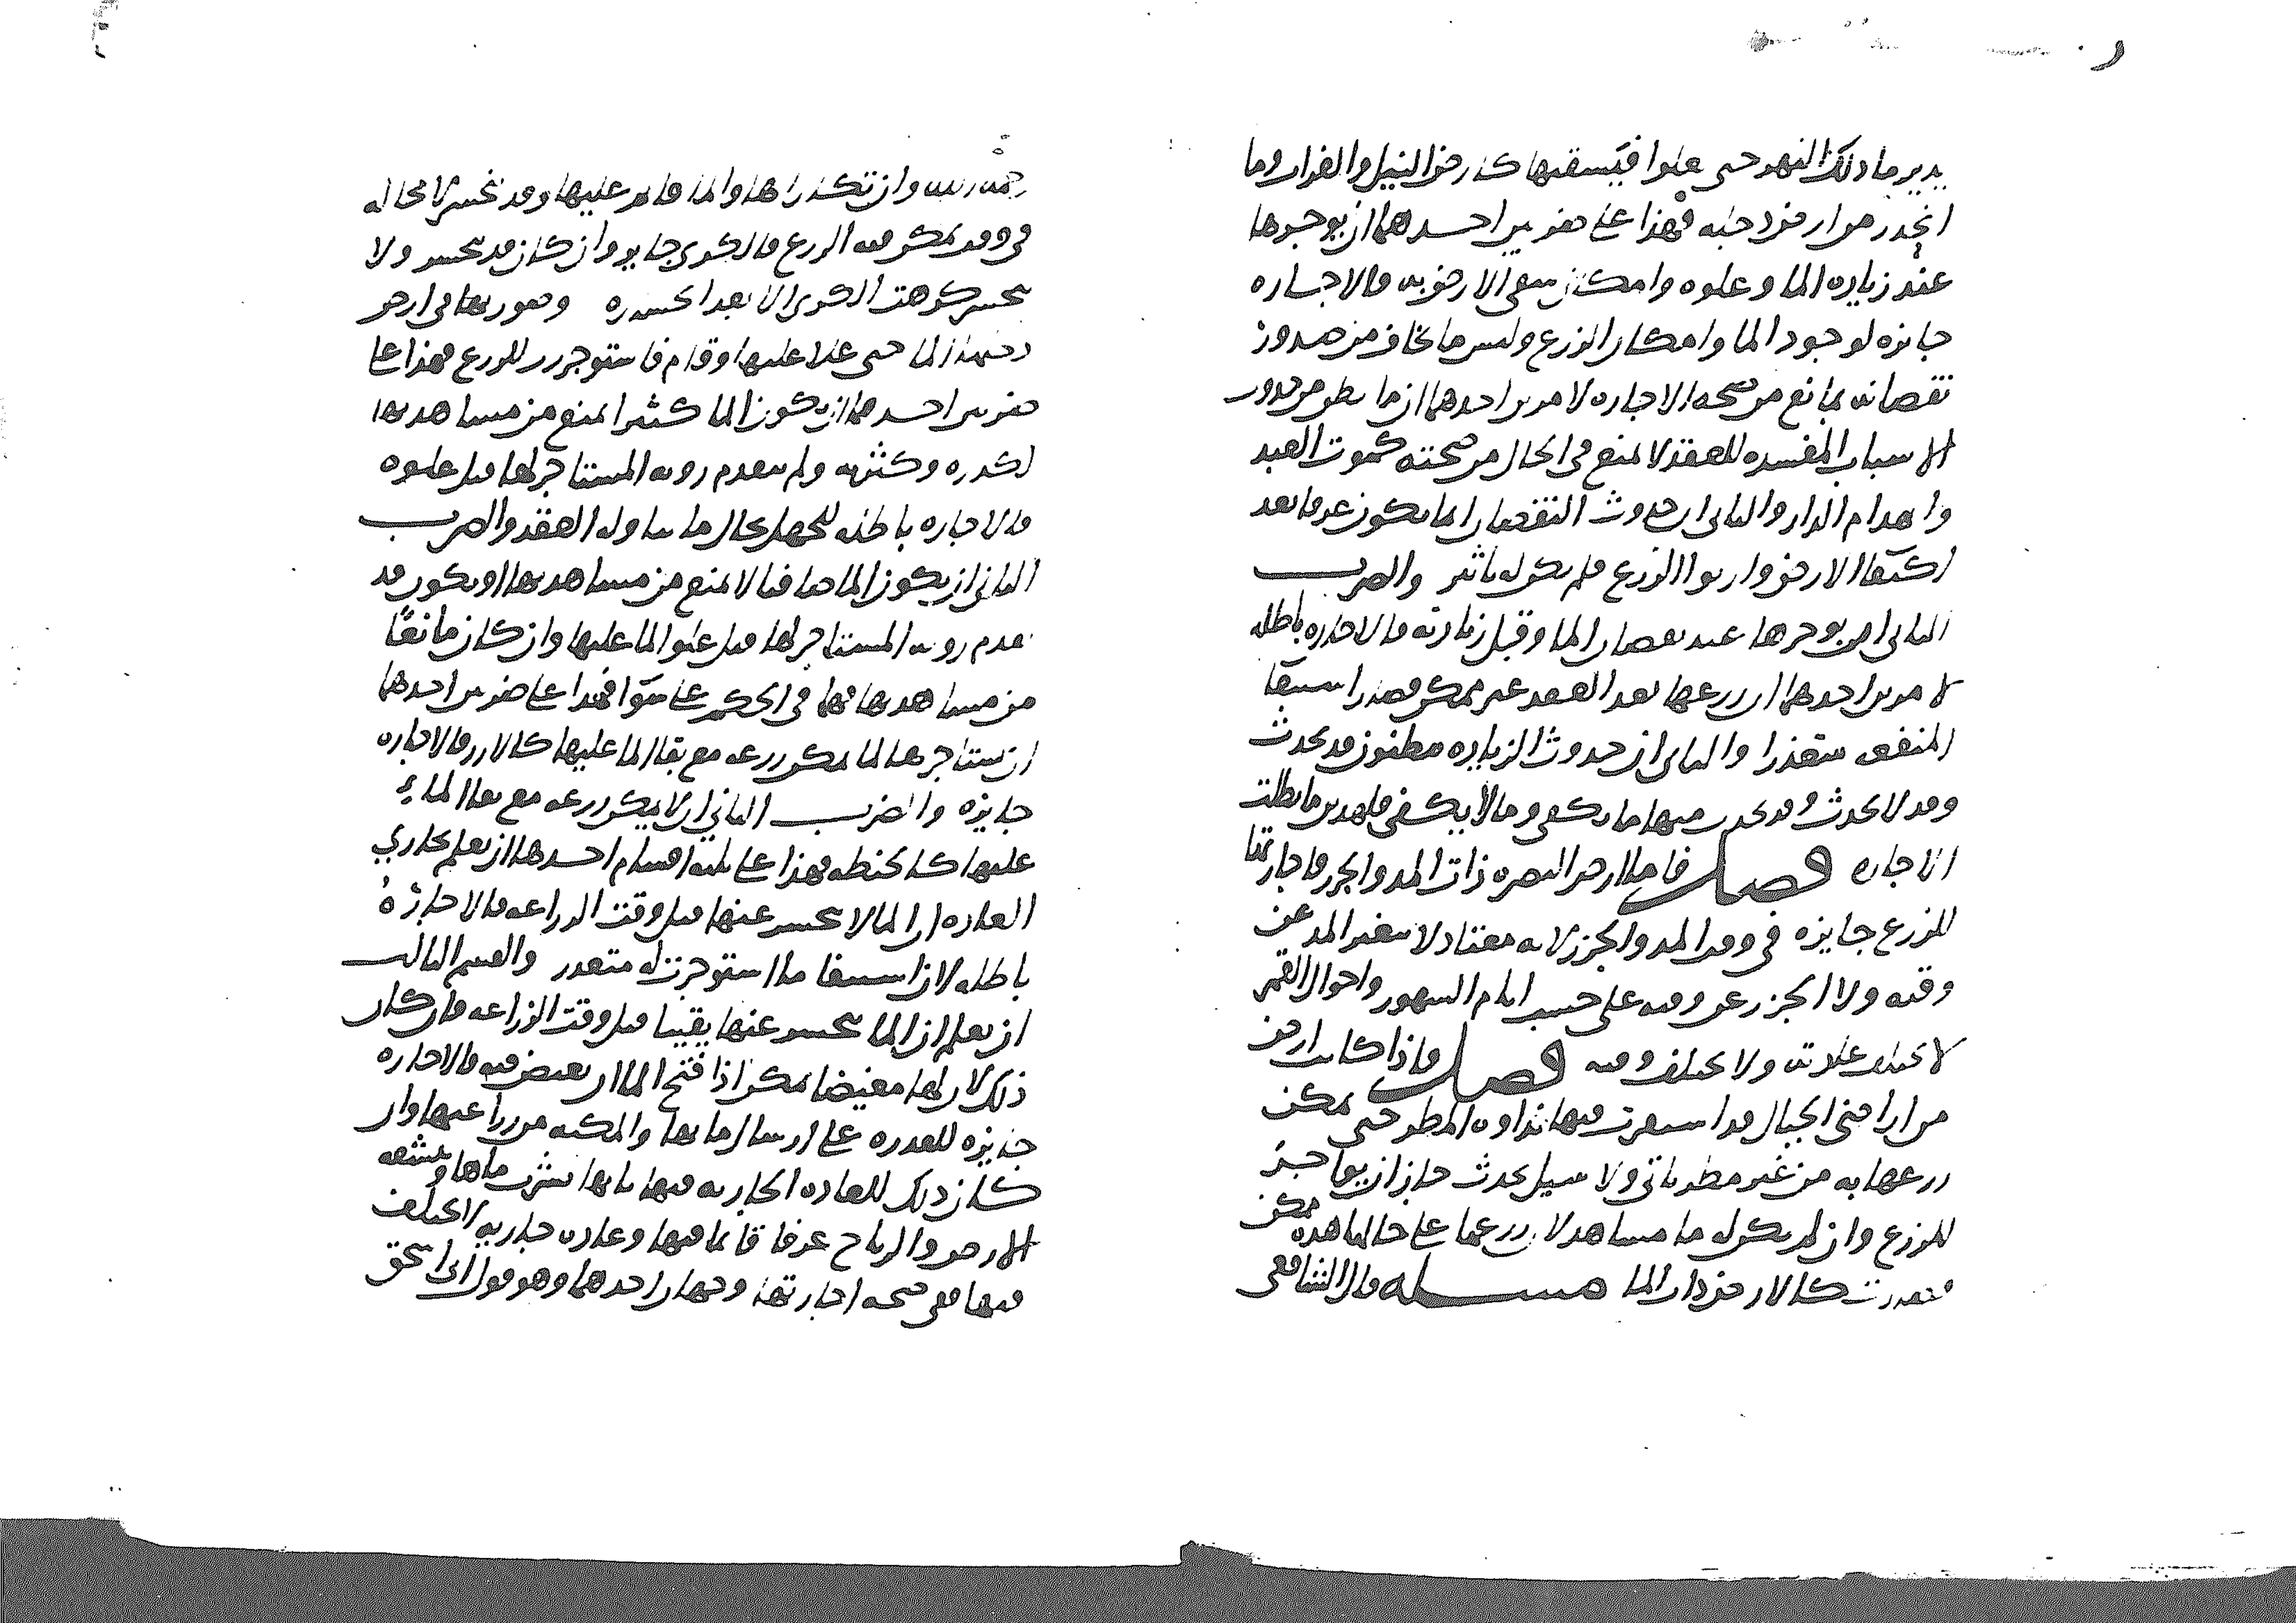 يزيد ما ذلك النهر حتى يعلوا فيسقيها كارض النيل والفرات وما
انحدر من ارض دجله فهذا على ضربين احدهما ان يوجرها
عند زياده الما وعلوه وامكان سقي الارض به فالاجاره
جايزه لوجود الما وامكان الزرع وليس ما يخاف من حدوث
نقصانه بمانع من صحه الاجاره لامرين احدهما ان ما يطرا من حدوث
الاسباب المفسده للعقد لا يمنع في الحال من صحته كموت العبد
وانهدام الدار والثاني ان حدوث النقصان انما يكون عرفا بعد
اكتفا الارض وارتوا الزرع فلم يكن له تاثير والضرب
الثاني ان يوجرها عند نقصان الما وقبل زيادته فالاجاره باطله
لامرين احدهما ان زرعها بعد العقد غير ممكن فصار استيفا
المنفعه متعذرا والثاني ان حدوث الزياده مظنون قد يحدث
وقد لا يحدث وقد يحدث منها ما يكفي وما لا يكفي فلهذين ما بطلت
الاجاره فصل فاما ارض البصره ذات المد والجزر فاجارتها
للزرع جايزه في وقت المد والجزر لانه معتاد لا يتغير المد عن
وقته ولا الجزر عن وقته على حسب ايام الشهور واحوال القمر
لا يختلف عادته ولا يختلف وقته فصل فاذا كانت ارض
من اراضي الجبال قد استقرت فيها نداوه المطر حتى يمكن
زرعها به من غير مطر ياتي ولا سيل يحدث جاز ان يواجر
للزرع وان لم يكن له ما مشاهد لان زرعها على حالها هذه ممكن
فصارت كالارض ذات الما مسله قال الشافعي
رحمه الله وان تكاراها والما قايم عليها وقد ينحسر لا محاله
في وقت يمكن فيه الزرع فالكري جايز وان كان قد ينحسر ولا
ينحسر كرهت الكري الا بعد انحساره وصورتها في ارض
الما حتى علا عليها وقام فاستوجرت للزرع فهذا على
ضربين احدهما ان يكون الما كثيرا يمنع من مشاهدتها
لكدره وكثرته ولم يتقدم رويه المستاجر لها قبل علوه
فالاجاره باطله للجهل بحال ما تناوله العقد والضرب
الثاني ان يكون الما صافيا لا يمنع من مشاهدتها او يكون قد
تقدم رويه المستاجر لها قبل علو الما عليها وان كان مانعا
من مشاهدتها فهما في الحكم على سوا فهذا على ضربين احدهما
ان يستاجرها لما يمكن زرعه مع بقا الما عليها كالارز فالاجاره
جايزه والضرب الثاني ان لا يمكن زرعه مع بقا الماء
عليها كالحنطه فهذا على ثلثه اقسام احدها ان يعلم بجاري
العاده ان الما لا ينحسر عنها قبل وقت الزراعه فالاجارة
باطله لان استيفا ما استوجرت له متعذر والقسم الثالث
ان يعلم ان الما ينحسر عنها يقينا قبل وقت الزراعه فان كان
ذلك لان لها مغيضا يمكن اذا فتح الما ان يغيض فيه فالاجاره
جايزه للقدره على ارسال مايها والمكنه من زراعتها وان
كان ذلك للعاده الجاريه فيها بانها تشرب ماها وتنشفه
الارض والرياح عرفا قايما فيها وعاده جاريه لا تختلف
فيها ففي صحه اجارتها وجهان احدهما وهو قول ابي اسحق